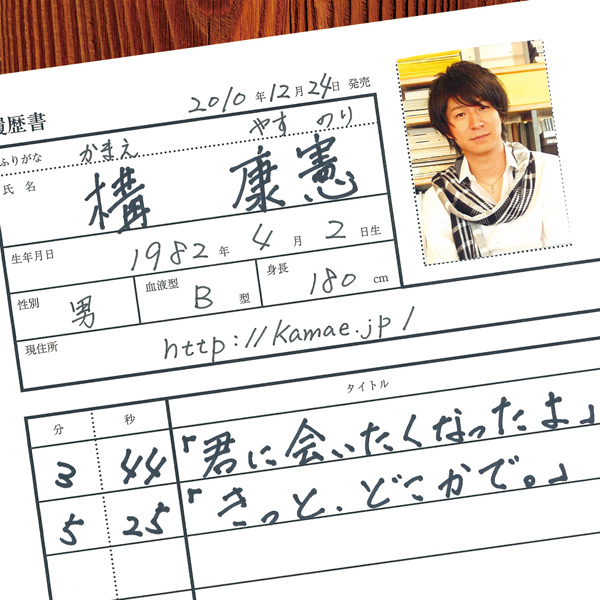 2010年12月24日 発売
履歴書
ふりがな かまえ やす のり
氏名 構 康憲
生年月日 1982年 4月 2日生
性別 男 血液型 B型 身長 180cm
現住所 http://kamae.jp/
分 秒 タイトル
3 44 「君に会いたくなったよ」
5 25 「きっと、どこかで。」